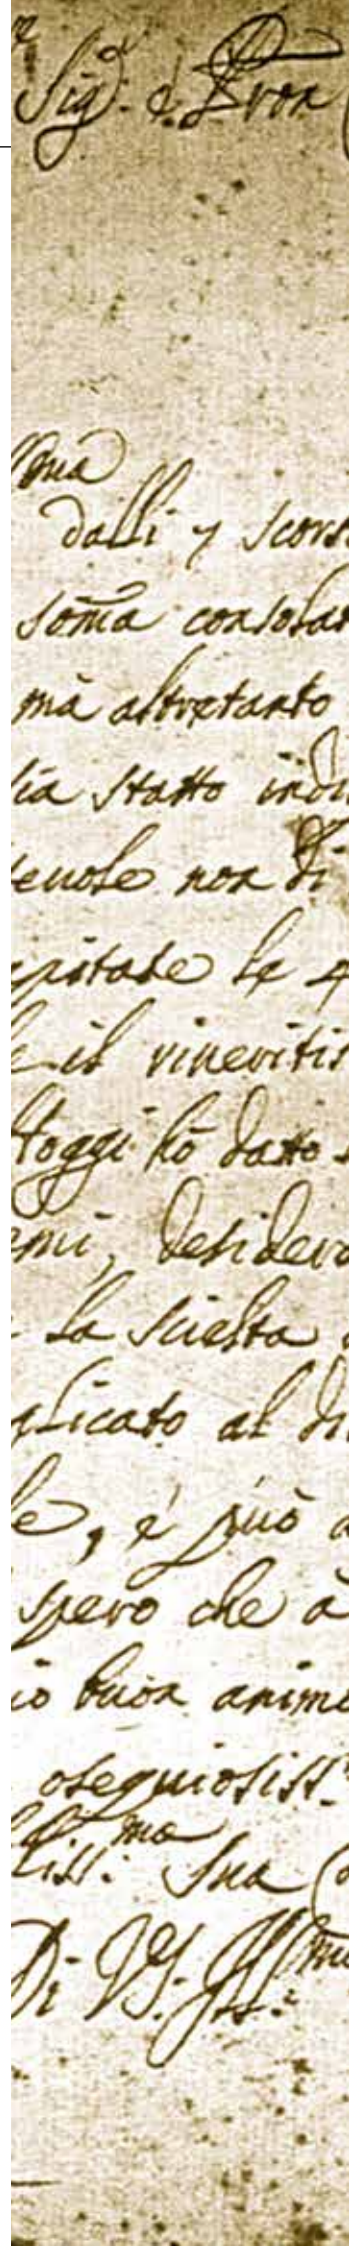 Sig.r e Pron
ma
dalli 7 scors
soma consolat
mà altretanto
sia statto indu
euole non di
apitate le 4
e il riueritis
Hoggi hò datto
emi, desidero
la scielta
plicato al di
le, è può a
spero che à
io buon anim
osequiosiss.
liss.ma Sua
Di V.S. Ill.ma